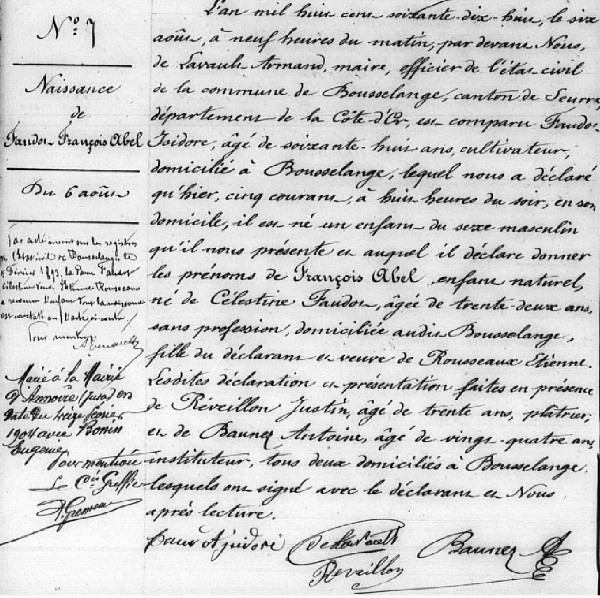 N.º 7
Naissance
de
Faudot François Abel
Du 6 août
L'an mil huit cent soixante-dix-huit, le six
août, à neuf heures du matin, par devant Nous,
de Lavault Armand, maire, officier de l'état civil
de la commune de Bousselange, canton de Seurre,
département de la Côte-d'Or, est comparu Faudot
Isidore, âgé de soixante-huit ans, cultivateur,
domicilié à Bousselange, lequel nous a déclaré
qu'hier, cinq courant, à huit heures du soir, en son
domicile, il est né un enfant du sexe masculin
qu'il nous présente et auquel il déclare donner
les prénoms de François Abel, enfant naturel,
né de Célestine Faudot, âgée de trente-deux ans,
sans profession, domiciliée audit Bousselange,
fille du déclarant et veuve de Rousseaux Etienne.
Lesdites déclaration et présentation faites en présence
de Réveillon Justin, âgé de trente ans, plâtrier,
et de Baunez Antoine, âgé de vingt-quatre ans,
instituteur, tous deux domiciliés à Bousselange
lesquels ont signé avec le déclarant et Nous
après lecture.
Par acte inscrit sur les registres
de Bousselange le
Février
Pour mention
Marié à la Mairie
d'Annoire (Jura) en
date du seize
1904 avec Bonin
Eugénie
Pour mention
Le Greffier
Réveillon
Baunez